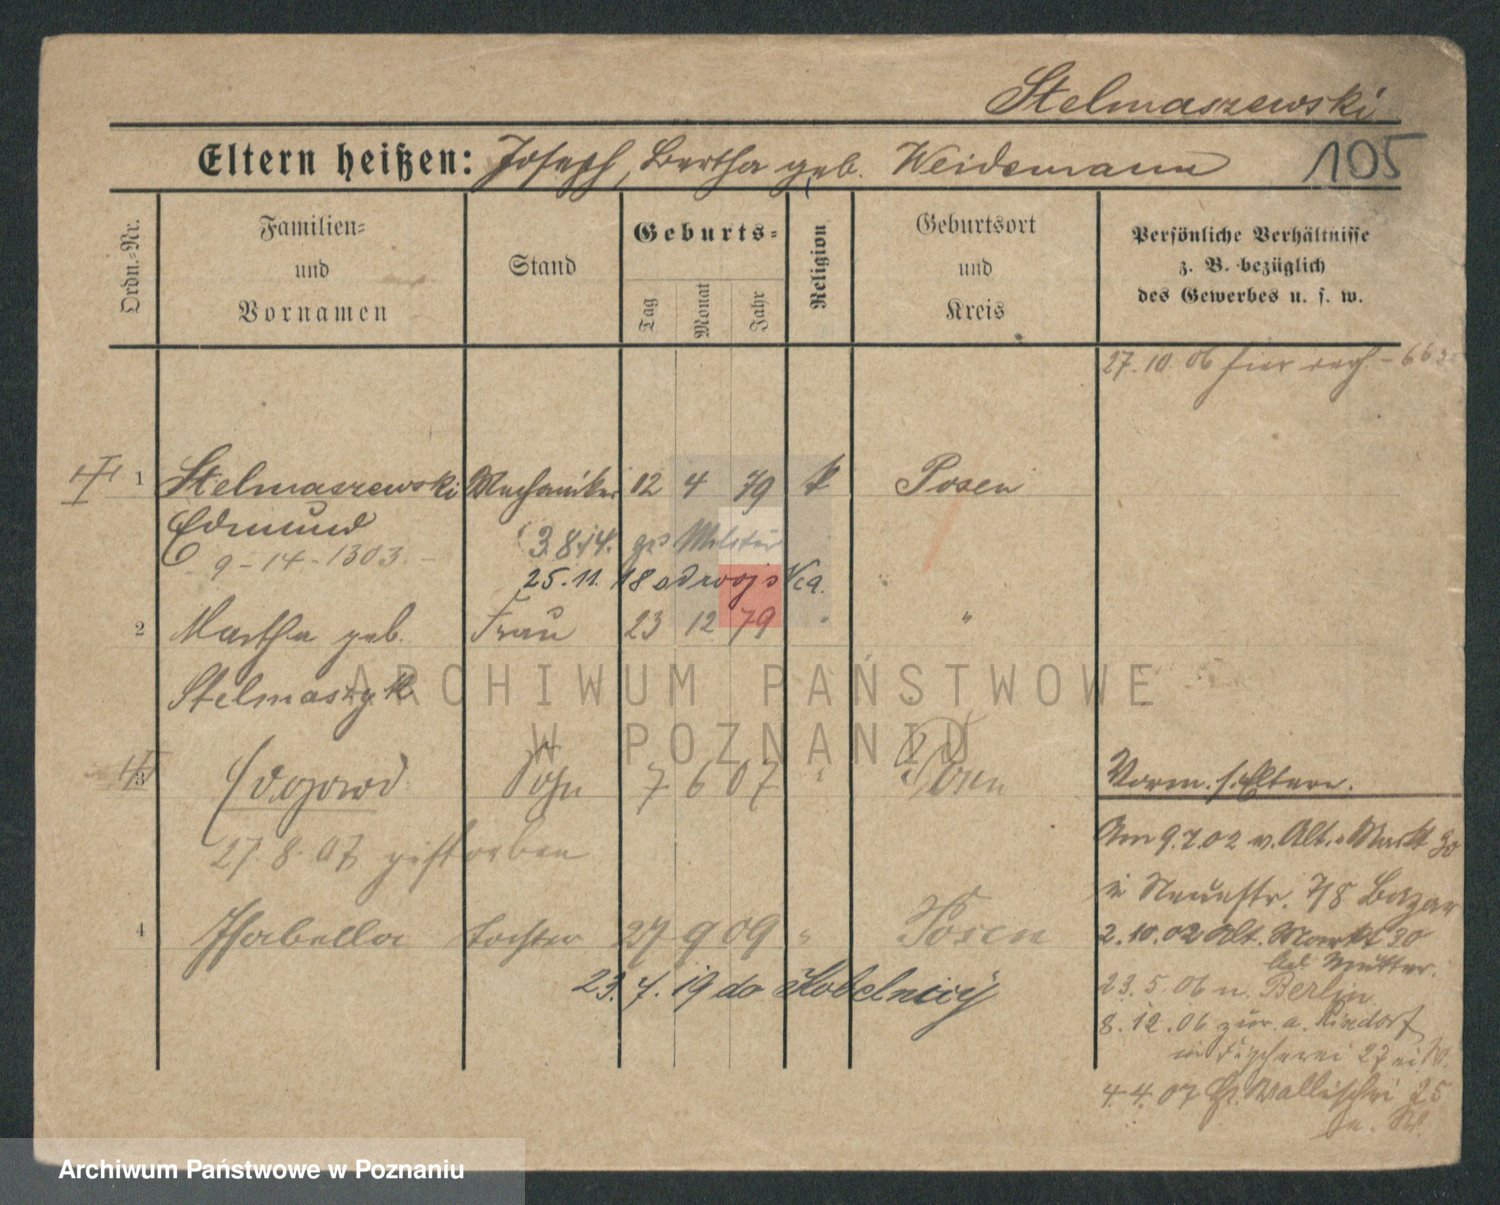 Stelmaszewski
Eltern heißen: Joseph, Bertha geb. Weidemann 105
Ordn.-Nr.
Familien-
und
Vornamen
Stand
Geburts-
Tag
Monat
Jahr
Religion
Geburtsort
und
Kreis
Persönliche Verhältnisse
z. B. bezüglich
des Gewerbes u. s. w.
27. 10. 06 hier
1 Stelmaszewski Mechaniker 12 4 79 k Posen
Edmund 3.8.14. Militär
- 9-14-1303. -
25.11.18 od wojska.
2 Martha geb. Frau 23 12 79 " "
Stelmaszyk
ARCHIWUM PAŃSTWOWE
W POZNANIU
3 Edward Sohn 7 6 07 " Posen
27. 8. 07 gestorben
4 Isabella Tochter 27 9 09 " Posen
23. 7. 19 do Kobelnicy
Vorm. s. Eltern.
Am 9.7.02 v. Alt. Markt 30
in Neuestr. 7/8 Bazar
2.10.02 Alt. Markt 30
bei Mutter.
23. 5. 06 n. Berlin
8. 12. 06 zur. a. Rixdorf
in Fischerei 27
4. 4. 07 Wallischei 25
Archiwum Państwowe w Poznaniu